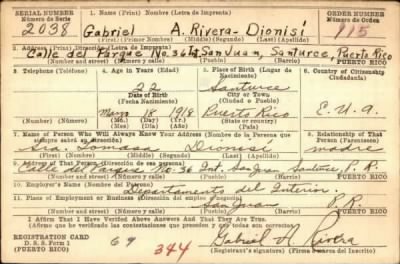 SERIAL NUMBER 1. Name (Print) Nombre (Letra de Imprenta) ORDER NUMBER
Número de Serie Número de Orden
2038 Gabriel A. Rivera-Dionisí 115
(First) (Nombre) (Middle) (Segundo) (Last) (Apellido)
2. Address (Print) Dirección (Letra de Imprenta)
Calle del Parque No. 36 Int, San Juan, Santurce, Puerto Rico
(Number and street) (Número y calle) (Town) (Pueblo) (Barrio) PUERTO RICO
3. Telephone (Teléfono) 4. Age in Years (Edad) 5. Place of Birth (Lugar de Nacimiento) 6. Country of Citizenship (Ciudadanía)
22 Santurce
Date of Birth (Fecha Nacimiento) City or Town (Ciudad o Pueblo)
18 1918 Puerto Rico E. U. A.
(Mo.) (Mes) (Day) (Día) (Yr.) (Año) (State or country) (Estado o país)
7. Name of Person Who Will Always Know Your Address (Nombre de la Persona que siempre sabrá su dirección) 8. Relationship of That Person (Parentesco)
Sra. Tomasa Dionisí madre
(First) (Nombre) (Middle) (Segundo) (Last) (Apellido)
9. Address of That Person (Dirección de esa persona)
Calle del Parque No. 36 Int. San Juan Santurce P. R.
(Number and street) (Número y calle) (Town) (Pueblo) (Barrio) PUERTO RICO
10. Employer's Name (Nombre del Patrono)
Departamento del Interior.
11. Place of Employment or Business (Dirección del empleo o negocio)
San Juan P. R.
(Number and street) (Número y calle) (Town) (Pueblo) (Barrio) PUERTO RICO
I Affirm That I Have Verified Above Answers And That They Are True.
(Afirmo que he verificado las contestaciones que preceden y que todas son correctas)
REGISTRATION CARD
D. S. S. Form 1
PUERTO RICO
69 344 Gabriel A Rivera
Registrant's signature (Firma del Inscrito)